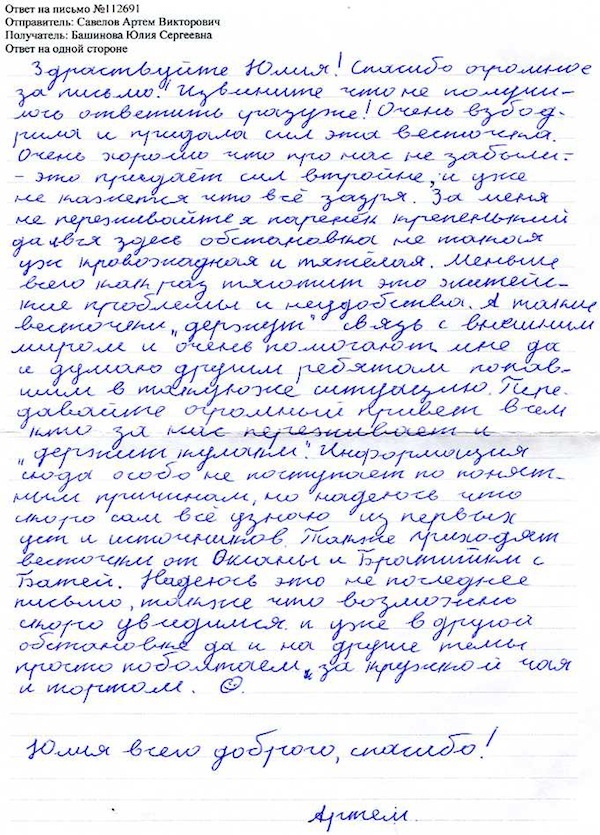 Ответ на письмо №112691
Отправитель: Савелов Артем Викторович
Получатель: Башинова Юлия Сергеевна
Ответ на одной стороне
Здраствуйте Юлия! Спасибо огромное
за письмо! Извините что не получи-
лось ответить сразуже! Очень взбод-
рила и придала сил эта весточка.
Очень хорошо что про нас не забыли-
- это придаёт сил втройне, и уже
не кажется что всё задря. За меня
не переживайте я паренёк крепенький
да и вся здесь обстановка не такая
уж кровожадная и тяжёлая. Меньше
всего как раз тяготит это житейс-
кие проблемы и неудобства. А такие
весточки „держут" связь с внешним
миром и очень помогают мне да
и думаю другим ребятам попав-
шим в такуюже ситуацию. Пере-
давайте огромный привет всем
кто за нас переживает и
„держит кулаки". Информация
сюда особо не поступает по понят-
ным причинам, но надеюсь что
скоро сам всё узнаю из первых
уст и источников. Также приходят
весточки от Оксаны и Братишки с
Батей. Надеюсь это не последнее
письмо, также что возможно
скоро увидимся и уже в другой
обстановке да и на другие темы
просто поболтаем, за кружкой чая
и тортом. ☺.
Юлия всего доброго, спасибо!
Артем.